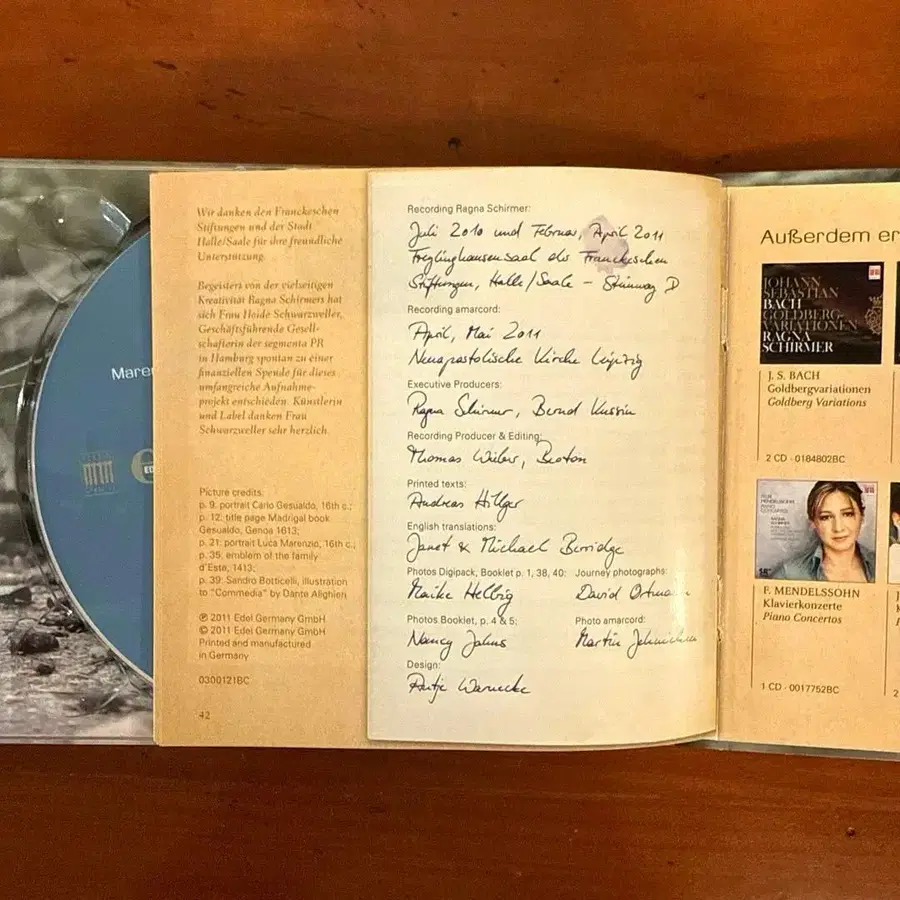 Maren
EDEL
Wir danken den Franckeschen
Stiftungen und der Stadt
Halle/Saale für ihre freundliche
Unterstützung.
Begeistert von der vielseitigen
Kreativität Ragna Schirmers hat
sich Frau Heide Schwarzweller,
Geschäftsführende Gesell-
schafterin der segmenta PR
in Hamburg spontan zu einer
finanziellen Spende für dieses
umfangreiche Aufnahme-
projekt entschieden. Künstlerin
und Label danken Frau
Schwarzweller sehr herzlich.
Picture credits:
p. 9. portrait Carlo Gesualdo, 16th c.;
p. 12: title page Madrigal book
Gesualdo, Genoa 1613;
p. 21: portrait Luca Marenzio, 16th c.;
p. 35: emblem of the family
d'Este, 1413;
p. 39: Sandro Botticelli, illustration
to "Commedia" by Dante Alighieri
℗ 2011 Edel Germany GmbH
© 2011 Edel Germany GmbH
Printed and manufactured
in Germany
0300121BC
42
Recording Ragna Schirmer:
Juli 2010 und Februar, April 2011
Freylinghausensaal der Franckeschen
Stiftungen, Halle/Saale – Steinway D
Recording amarcord:
April, Mai 2011
Neuapostolische Kirche Leipzig
Executive Producers:
Ragna Schirmer, Bernd Kussin
Recording Producer & Editing:
Thomas Wieber, Beoton
Printed texts:
Andreas Hillger
English translations:
Janet & Michael Berridge
Photos Digipack, Booklet p. 1, 38, 40: Journey photographs:
Maike Helbig David Ortmann
Photos Booklet, p. 4 & 5; Photo amarcord:
Nancy Jahns Martin Jehnichen
Design:
Antje Warnecke
Außerdem er
JOHANN
SEBASTIAN
BACH
GOLDBERG-
VARIATIONEN
RAGNA
SCHIRMER
J. S. BACH
Goldbergvariationen
Goldberg Variations
2 CD · 0184802BC
FELIX
MENDELSSOHN
PIANO
CONCERTOS
RAGNA
SCHIRMER
F. MENDELSSOHN
Klavierkonzerte
Piano Concertos
1 CD · 0017752BC
2